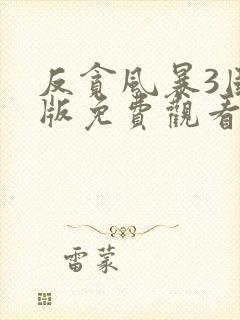 反貪風暴3國
版免費觀看
雷蒙